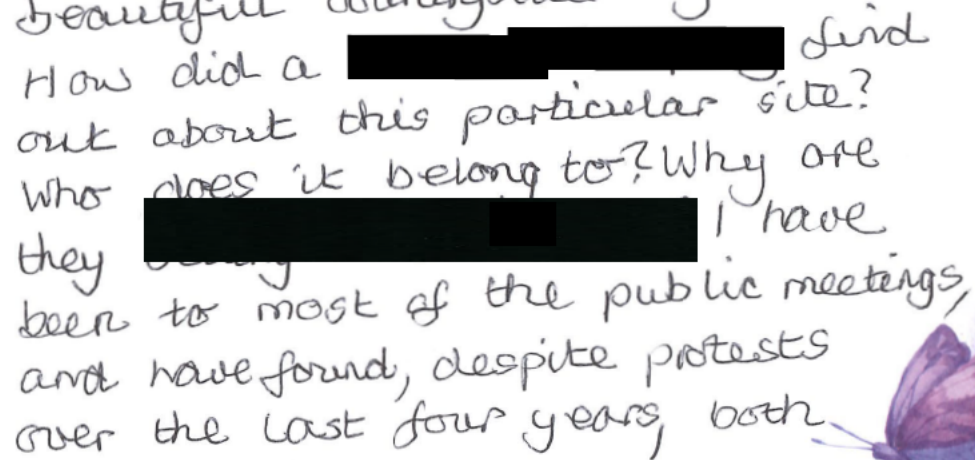 beautiful
How did a find
out about this particular site?
Who does it belong to? Why are
they I have
been to most of the public meetings,
and have found, despite protests
over the last four years, both